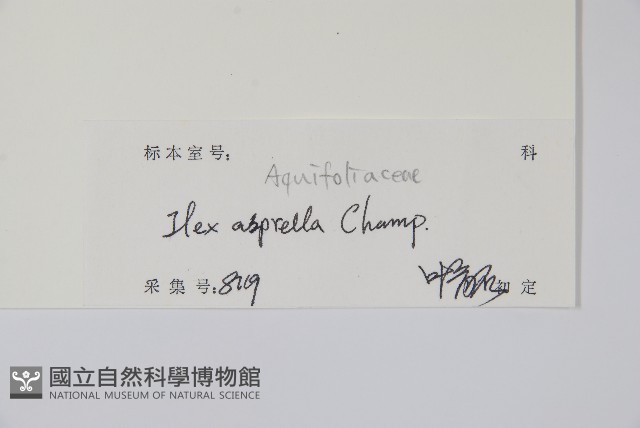 标本室号: 科
Aquifoliaceae
Ilex asprella Champ.
采集号: 819 初定
國立自然科學博物館
NATIONAL MUSEUM OF NATURAL SCIENCE